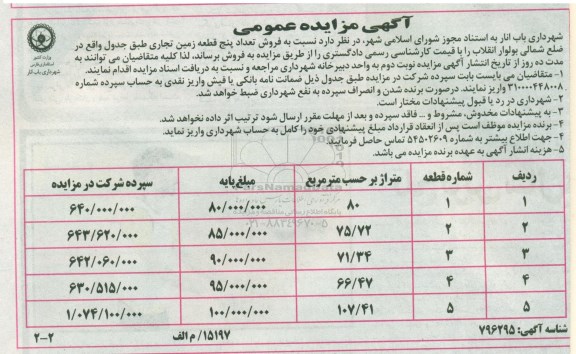 آگهی مزایده عمومی
وزارت کشور
شهرداری باب انار
شهرداری باب انار به استناد مجوز شورای اسلامی شهر، در نظر دارد نسبت به فروش تعداد پنج قطعه زمین تجاری طبق جدول واقع در
ضلع شمالی بولوار انقلاب را با قیمت کارشناسی رسمی دادگستری را از طریق مزایده به فروش برساند، لذا کلیه متقاضیان می توانند به
مدت ده روز از تاریخ انتشار آگهی مزایده نوبت دوم به واحد دبیرخانه شهرداری مراجعه و نسبت به دریافت اسناد مزایده اقدام نمایند.
۱- متقاضیان می بایست بابت سپرده شرکت در مزایده طبق جدول ذیل ضمانت نامه بانکی یا فیش واریز نقدی به حساب سپرده شماره
۳۱۰۰۰۰۴۴۸۰۰۸ واریز نمایند. درصورت برنده شدن و انصراف سپرده به نفع شهرداری ضبط خواهد شد.
۲- شهرداری در رد یا قبول پیشنهادات مختار است.
۳- به پیشنهادات مخدوش، مشروط و ... فاقد سپرده و بعد از مهلت مقرر ارسال شود ترتیب اثر داده نخواهد شد.
۴- برنده مزایده موظف است پس از انعقاد قرارداد مبلغ پیشنهادی خود را کامل به حساب شهرداری واریز نماید.
۴- جهت اطلاع بیشتر به شماره ۵۴۵۰۲۶۰۹ تماس حاصل فرمایید.
۵- هزینه انتشار آگهی به عهده برنده مزایده می باشد.
ردیف شماره قطعه متراژ بر حسب مترمربع مبلغ پایه سپرده شرکت در مزایده
۱ ۱ ۸۰ ۸۰/۰۰۰/۰۰۰ ۶۴۰/۰۰۰/۰۰۰
۲ ۲ ۷۵/۷۲ ۸۵/۰۰۰/۰۰۰ ۶۴۳/۶۲۰/۰۰۰
۳ ۳ ۷۱/۳۴ ۹۰/۰۰۰/۰۰۰ ۶۴۲/۰۶۰/۰۰۰
۴ ۴ ۶۶/۴۷ ۹۵/۰۰۰/۰۰۰ ۶۳۰/۵۱۵/۰۰۰
۵ ۵ ۱۰۷/۴۱ ۱۰۰/۰۰۰/۰۰۰ ۱/۰۷۴/۱۰۰/۰۰۰
شناسه آگهی: ۷۹۶۲۹۵ ۱۵۱۹۷/ م الف ۲-۲